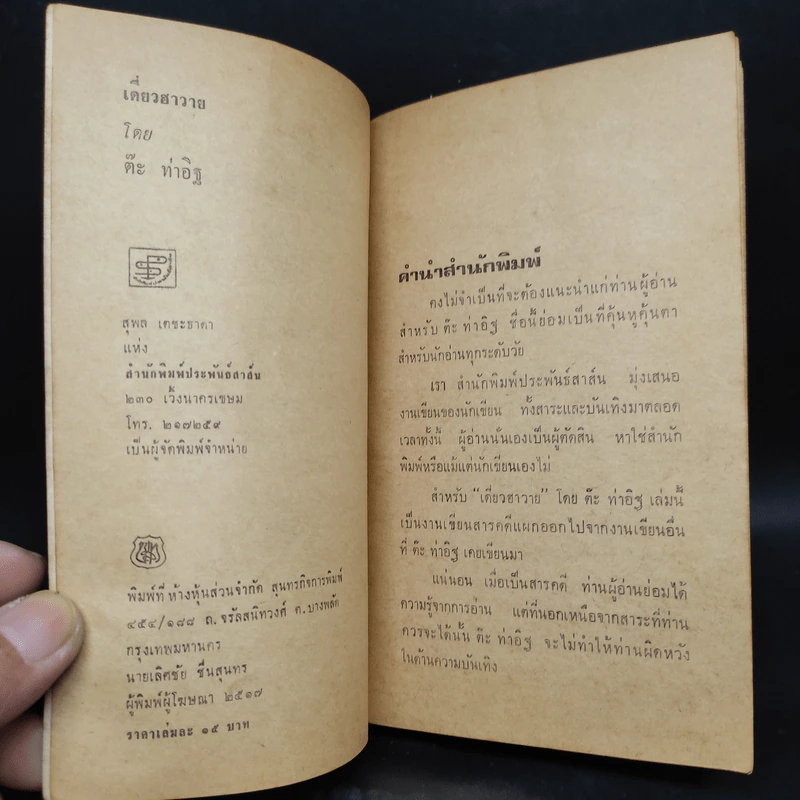 เดี่ยวฮาวาย
โดย
ต๊ะ ท่าอิฐ
สุพล เตชะธาดา
แห่ง
สำนักพิมพ์ประพันธ์สาส์น
๒๓๐ เวิ้งนาครเขษม
โทร. ๒๑๗๒๕๙
เป็นผู้จัดพิมพ์จำหน่าย
พิมพ์ที่ ห้างหุ้นส่วนจำกัด สุนทรกิจการพิมพ์
๔๕๔/๑๘๘ ถ.จรัลสนิทวงศ์ ต.บางพลัด
กรุงเทพมหานคร
นายเลิศชัย ชื่นสุนทร
ผู้พิมพ์ผู้โฆษณา ๒๕๑๗
ราคาเล่มละ ๑๕ บาท
คำนำสำนักพิมพ์
คงไม่จำเป็นที่จะต้องแนะนำแก่ท่านผู้อ่าน
สำหรับ ต๊ะ ท่าอิฐ ชื่อนี้ย่อมเป็นที่คุ้นหูคุ้นตา
สำหรับนักอ่านทุกระดับวัย
เรา สำนักพิมพ์ประพันธ์สาส์น มุ่งเสนอ
งานเขียนของนักเขียน ทั้งสาระและบันเทิงมาตลอด
เวลาทั้งนี้ ผู้อ่านนั่นเองเป็นผู้ตัดสิน หาใช่สำนัก
พิมพ์หรือแม้แต่นักเขียนเองไม่
สำหรับ "เดี่ยวฮาวาย" โดย ต๊ะ ท่าอิฐ เล่มนี้
เป็นงานเขียนสารคดีแผกออกไปจากงานเขียนอื่น
ที่ ต๊ะ ท่าอิฐ เคยเขียนมา
แน่นอน เมื่อเป็นสารคดี ท่านผู้อ่านย่อมได้
ความรู้จากการอ่าน แต่ที่นอกเหนือจากสาระที่ท่าน
ควรจะได้นั้น ต๊ะ ท่าอิฐ จะไม่ทำให้ท่านผิดหวัง
ในด้านความบันเทิง